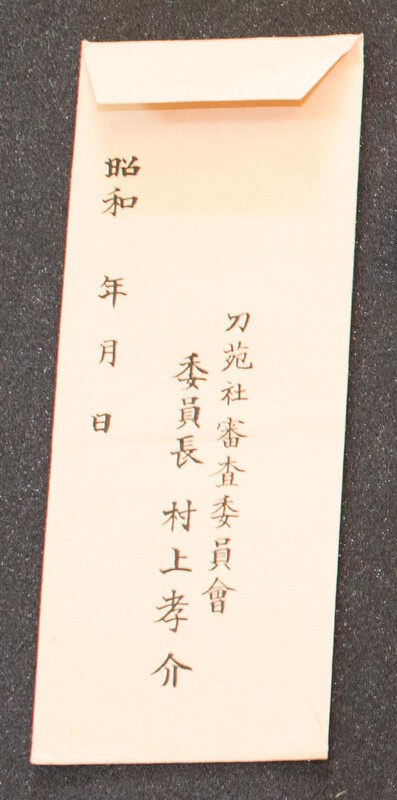 刀苑社審査委員會
委員長 村上孝介
昭和 年 月 日